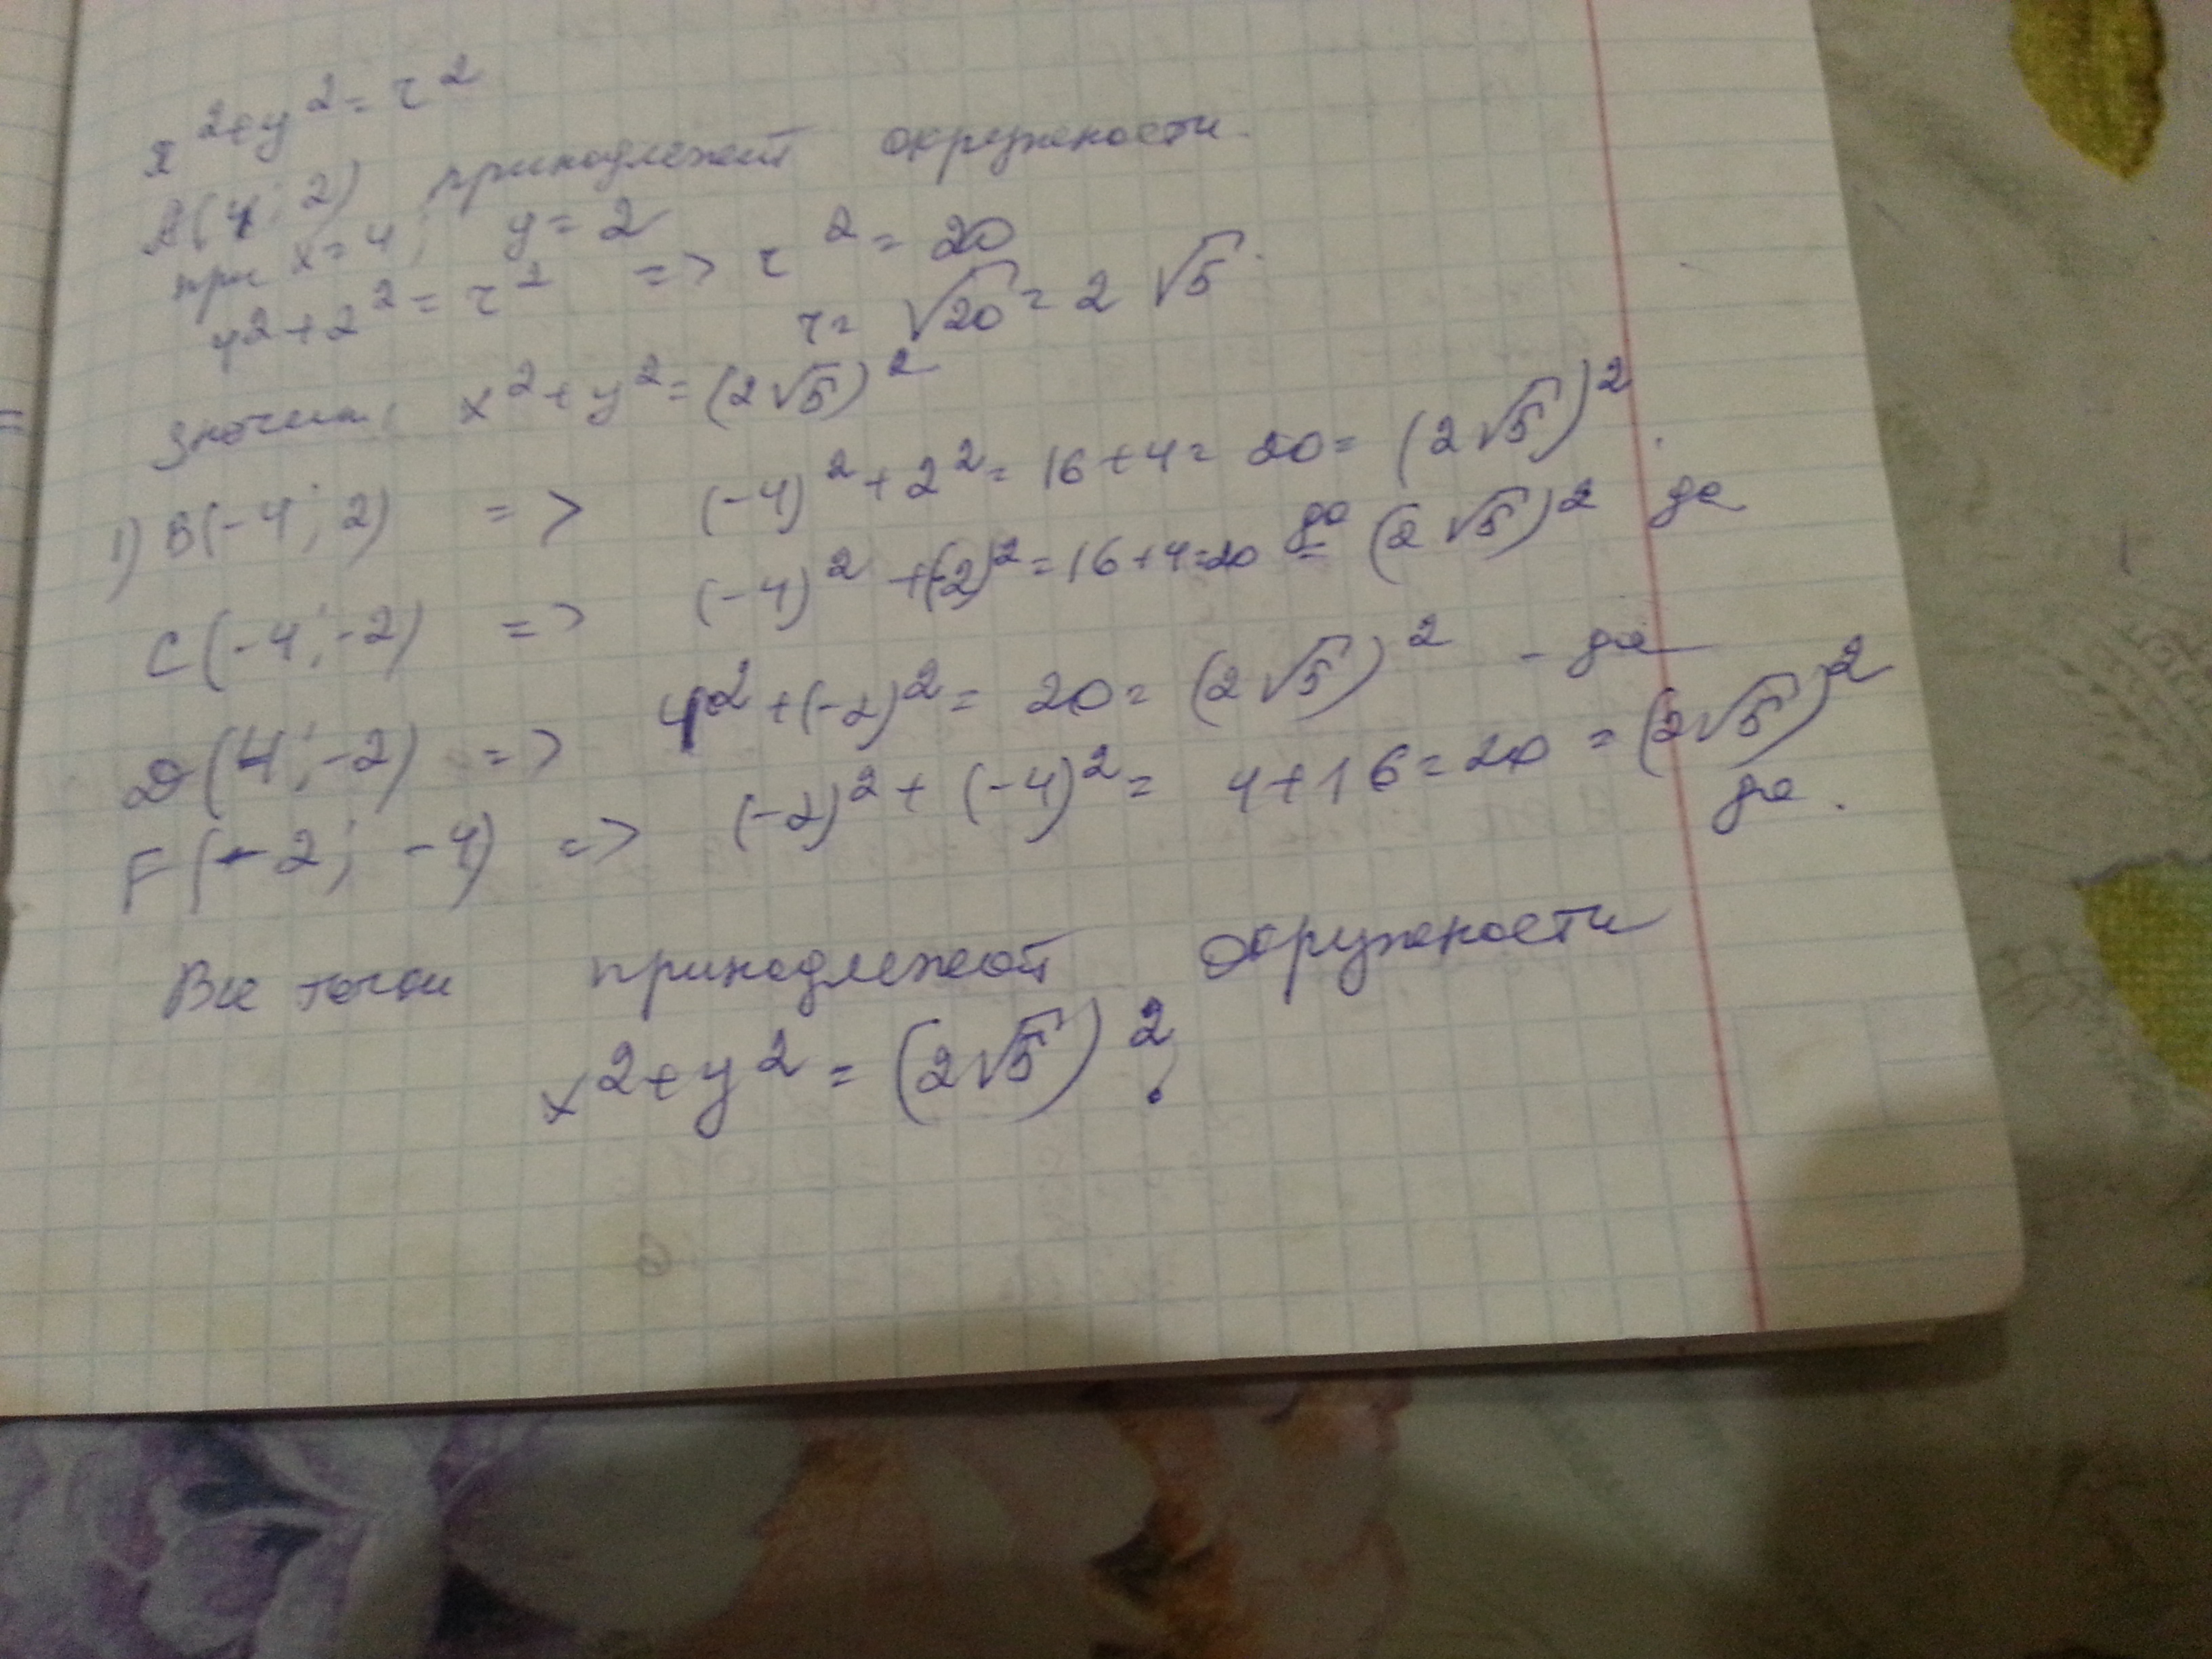 x² + y² = r²
A(4; 2) принадлежит окружности.
при x = 4; y = 2
4² + 2² = r² => r² = 20
r = √20 = 2√5.
Значит, x² + y² = (2√5)²
1) B(-4; 2) => (-4)² + 2² = 16 + 4 = 20 = (2√5)².
да
C(-4; -2) => (-4)² + (-2)² = 16 + 4 = 20 = (2√5)² да
D(4; -2) => 4² + (-2)² = 20 = (2√5)² - да
F(-2; -4) => (-2)² + (-4)² = 4 + 16 = 20 = (2√5)²
да.
Все точки принадлежат окружности
x² + y² = (2√5)²